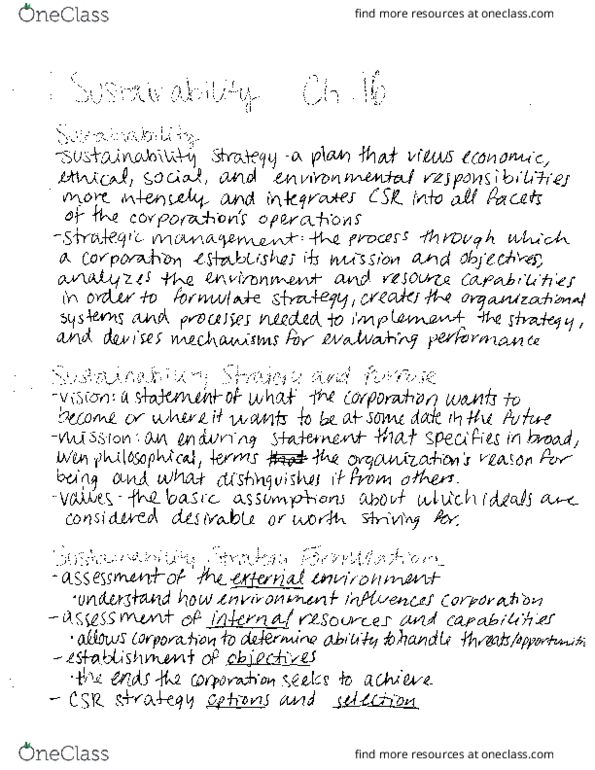 OneClass
find more resources at oneclass.com
Sustainability Ch. 16
Sustainability
-sustainability strategy - a plan that views economic,
ethical, social, and environmental responsibilities
more intensely and integrates CSR into all facets
of the corporation's operations
-strategic management: the process through which
a corporation establishes its mission and objectives,
analyzes the environment and resource capabilities
in order to formulate strategy, creates the organizational
systems and processes needed to implement the strategy,
and devises mechanisms for evaluating performance
Sustainability Strategy and Purpose
-vision: a statement of what the corporation wants to
become or where it wants to be at some date in the future
-mission: an enduring statement that specifies in broad,
philosophical, terms that the organization's reason for
being and what distinguishes it from others.
-values - the basic assumptions about which ideals are
considered desirable or worth striving for.
Sustainability Strategy Formulation
-assessment of the external environment
·understand how environment influences corporation
-assessment of internal resources and capabilities
·allows corporation to determine ability to handle threats/opportunities
-establishment of objectives
·the ends the corporation seeks to achieve
- CSR strategy options and selection
OneClass
find more resources at oneclass.com